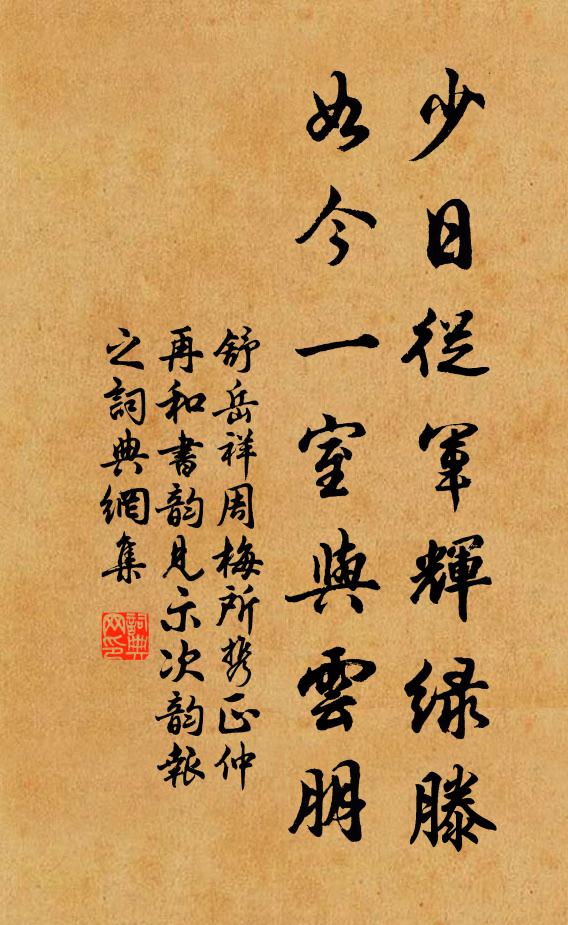 少日從軍輝緑滕
如今一室與雲朋
舒岳祥周梅所携正仲
再和書韵見示次韵報
之詞典網集
詞典網印